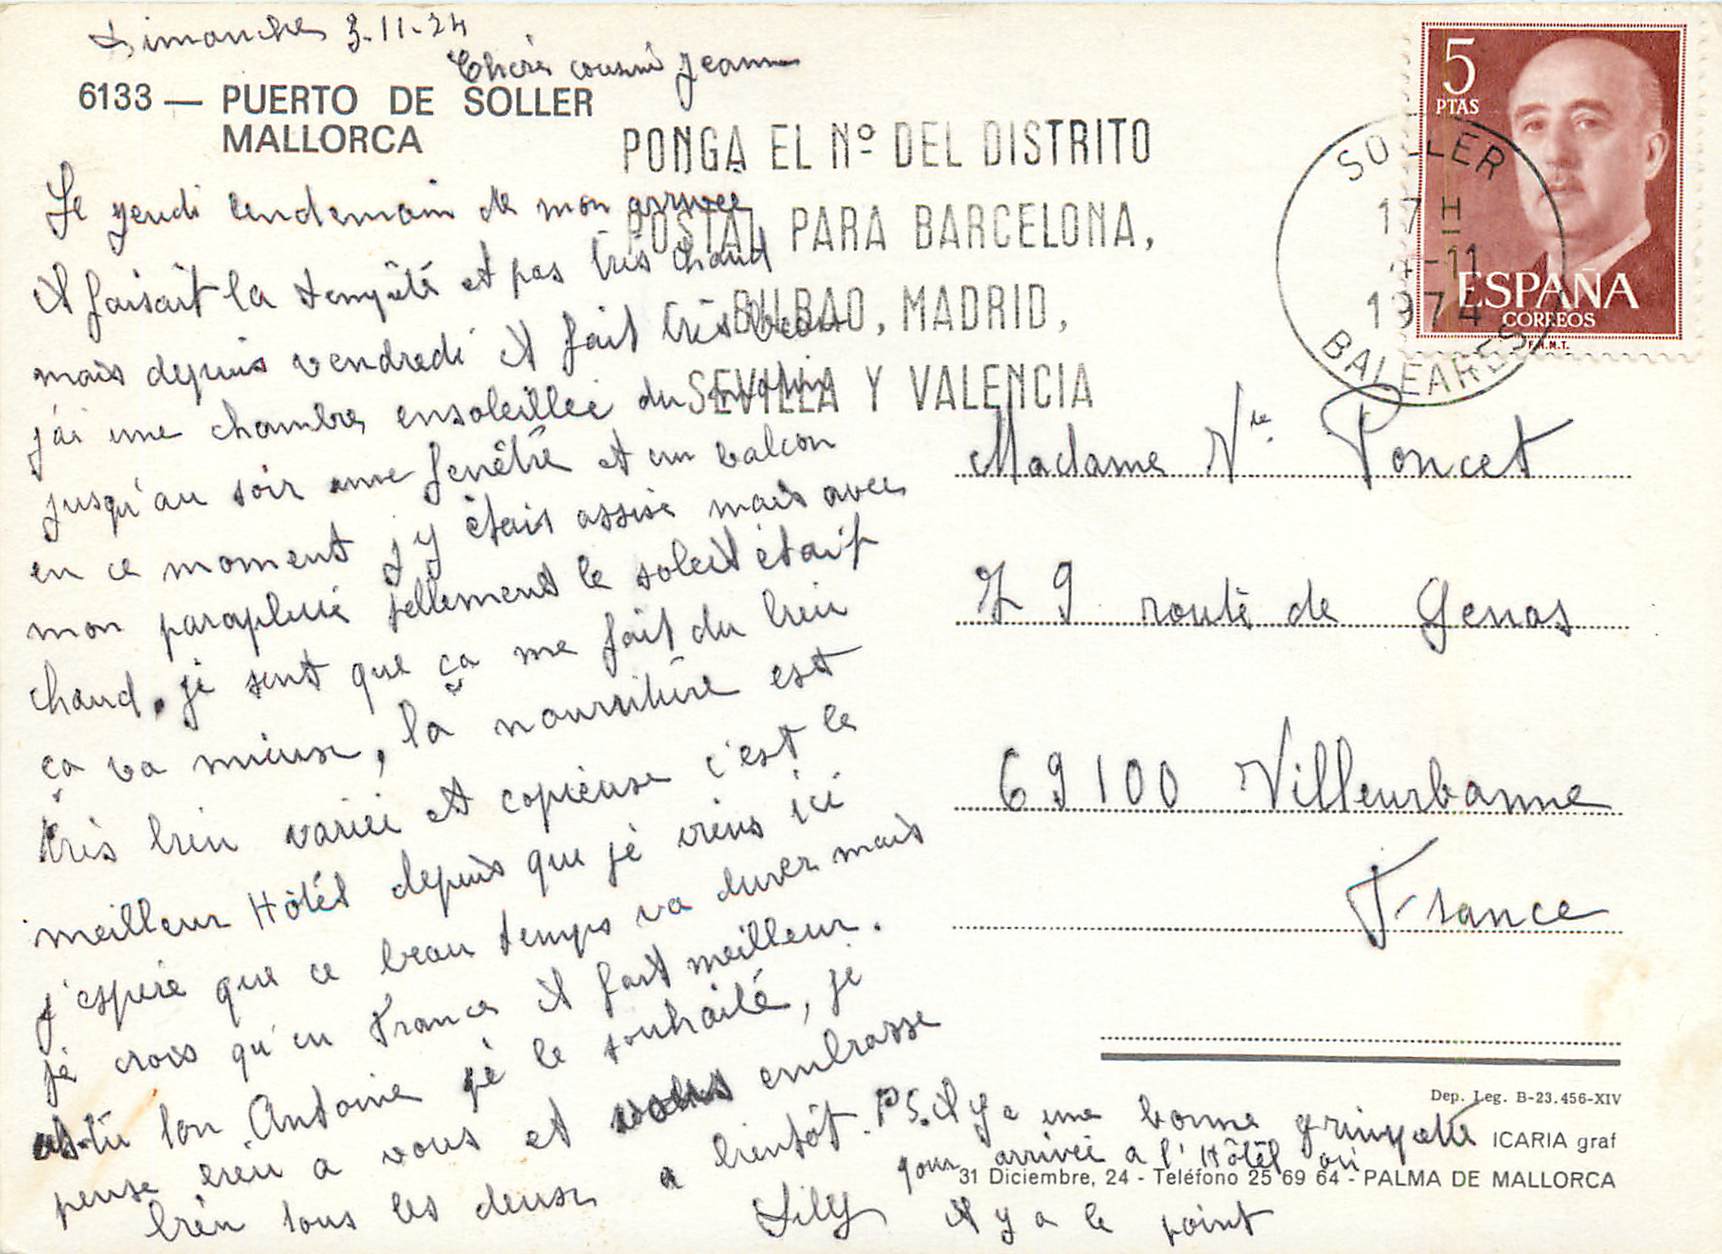 Dimanche 3-11-74
Chère cousine Jeanne
6133 — PUERTO DE SOLLER
MALLORCA
Le jeudi lendemain de mon arrivée
il faisait la tempête et pas très chaud
mais depuis vendredi il fait très beau
j'ai une chambre ensoleillée du matin
jusqu'au soir une fenêtre et un balcon
en ce moment j'y étais assise mais avec
mon parapluie tellement le soleil était
chaud, je sent que ça me fait du bien
ça va mieux, la nourriture est
très bien variée et copieuse c'est le
meilleur Hôtel depuis que je viens ici
j'espère que ce beau temps va durer mais
je crois qu'en France il fait meilleur.
as-tu ton Antoine je le souhaite, je
pense bien a vous et vous embrasse
bien tous les deux a bientôt.
Lily
PS. il y a une bonne grimpette
pour arrivée a l'Hôtel où
il y a le point
PONGA EL Nº DEL DISTRITO
POSTAL PARA BARCELONA,
BILBAO, MADRID,
SEVILLA Y VALENCIA
SOLLER
17 H
4-11
1974
BALEARES
5
PTAS
ESPAÑA
CORREOS
F.N.M.T.
Madame Vve Poncet
79 route de Genas
69100 Villeurbanne
France
Dep. Leg. B-23.456-XIV
ICARIA graf
31 Diciembre, 24 - Teléfono 25 69 64 - PALMA DE MALLORCA